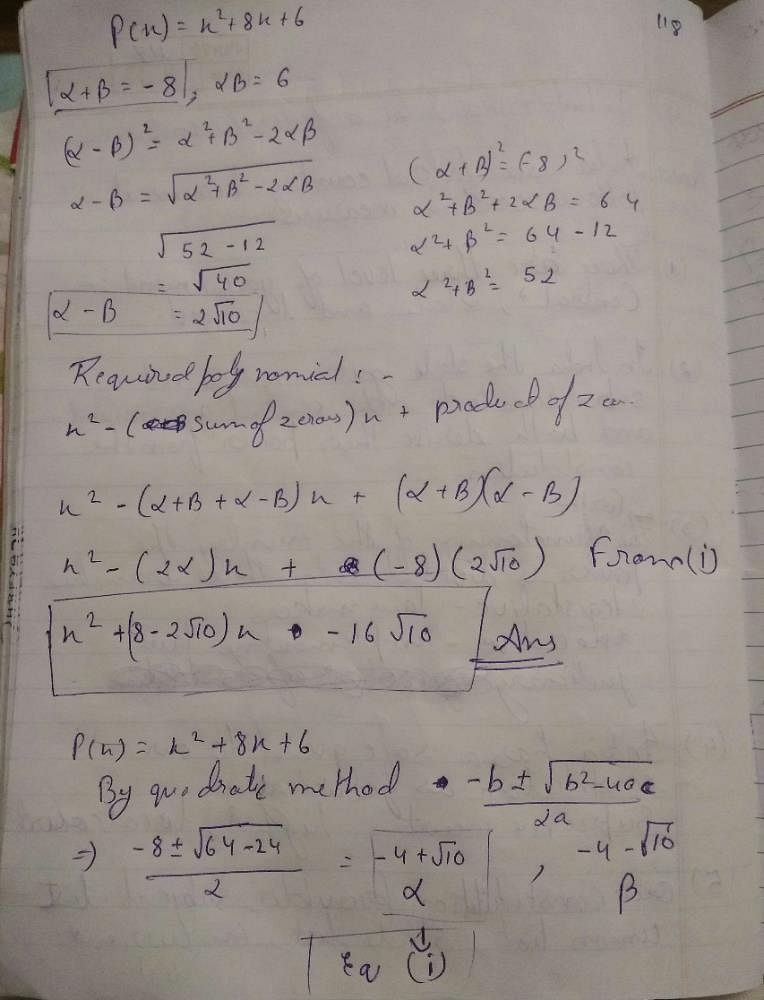 118
P(x) = x²+8x+6
α+β = -8, αβ = 6
(α-β)² = α²+β²-2αβ
α-β = √α²+β²-2αβ
√52-12
= √40
α-β = 2√10
(α+β)² = (-8)²
α²+β²+2αβ = 64
α²+β² = 64-12
α²+β² = 52
Required polynomial :-
x² - (sum of zeroes)x + product of
x² - (α+β+α-β)x + (α+β)(α-β)
x² - (2α)x + (-8)(2√10) From (i)
x² + (8-2√10)x - 16√10 Ans
P(x) = x²+8x+6
By quadratic method -b ± √b²-4ac
2a
⇒ -8 ± √64-24 = -4+√10 , -4-√10
2 α β
Eq (i)